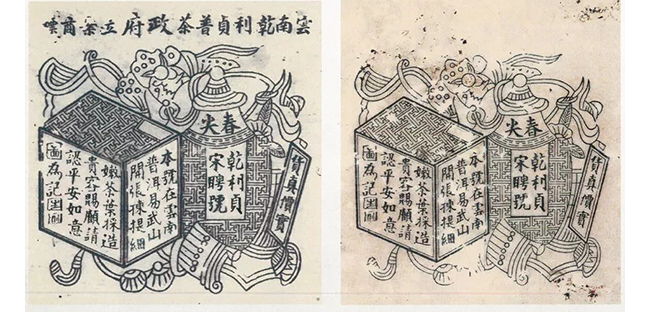 雲南乾利貞普茶政府立案商嘜
春尖
乾利貞
宋聘號
貨真價實
本號在雲南
普洱易武山
開張揀提細
嫩茶葉採造
貴客賜顧請
認平安如意
圖為記
春尖
乾利貞
宋聘號
貨真價實
本號在雲南
普洱易武山
開張揀提細
嫩茶葉採造
貴客賜顧請
認平安如意
圖為記